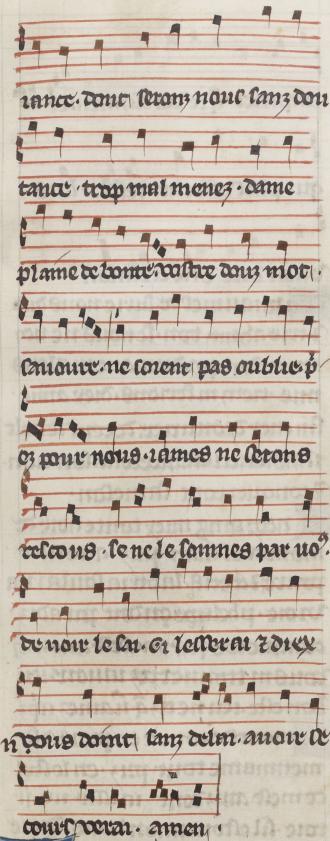 tance. dont serons nous sanz dou
tance. trop mal menez. dame
plaine de bonte. vostre douz mot
savoure. ne soient pas oublie. p̄
ez pour nous. iames ne serons
rescous. se ne le sommes par uoꝰ.
de uoir le sai. Ci lesserai ⁊ diex
nous doint sanz delai. auoir se
cours verai. amen.